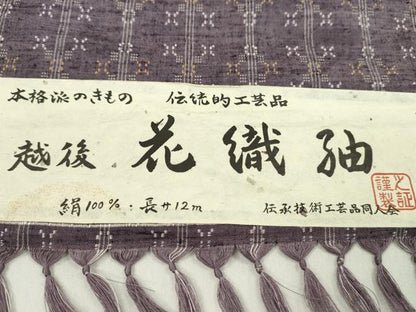 本格派のきもの 伝統的工芸品
越後 花織紬
絹100%・長サ12m 伝承技術工芸品同人会
之証
謹製